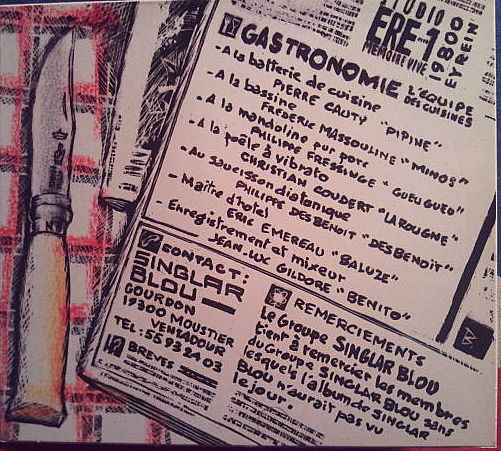 STUDIO
ERE-1
MEMOIRE VIVE
19800
EYREIN
GASTRONOMIE
L'ÉQUIPE
DES CUISINES
- A la batterie de cuisine
PIERRE CAUTY "PIPINE"
- A la bassine
FREDERIC MASSOULINE "MINOS"
- A la mandoline pur porc
PHILIPPE FRESSINGE "GUEUGUEU"
- A la poêle à vibrato
CHRISTIAN COUDERT "LAROUGNE"
- Au saucisson diatonique
PHILIPPE DESBENOIT "DESBENOIT"
- Maître d'hôtel
ERIC EMEREAU "BALUZE"
- Enregistrement et mixeur
JEAN-LUC GILDORE "BENITO"
CONTACT:
SINGLAR
BLOU
GOURDON
19300 MOUSTIER
VENTADOUR
TEL: 55 93 24 03
BREVES
REMERCIEMENTS
Le Groupe SINGLAR BLOU
tient à remercier les membres
du Groupe SINGLAR BLOU sans
lesquels l'album de SINGLAR
BLOU n'aurait pas vu
le jour.